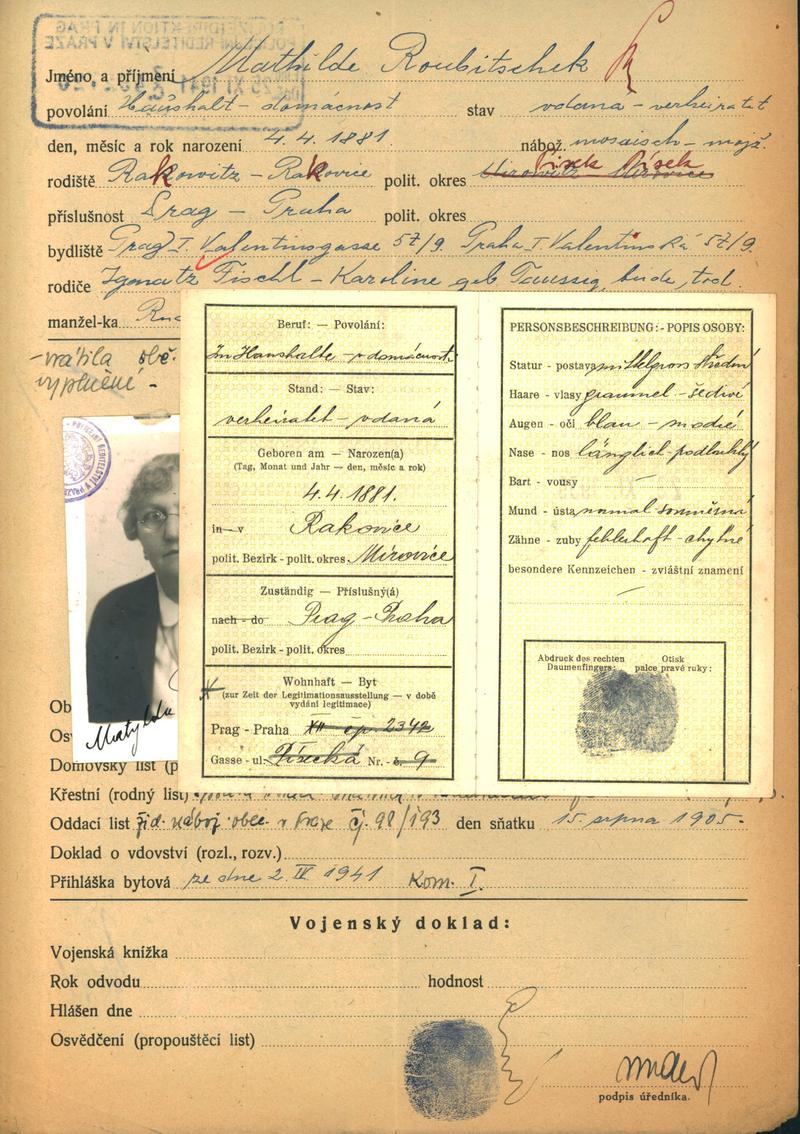 POLIZEIDIREKTION IN PRAG
POLICEJNÍ ŘEDITELSTVÍ V PRAZE
25 XI 1941
Jméno a příjmení Mathilde Roubitschek
povolání Haushalt - domácnost stav vdaná - verheiratet
den, měsíc a rok narození 4.4.1881. nábož. mosaisch - mojž.
Písek Písek
rodiště Rakowitz - Rakovice polit. okres Mirowitz Mirovice
příslušnost Prag - Praha polit. okres
bydliště Prag I. Valentinsgasse 57/9. Praha I. Valentinská 57/9.
rodiče Ignatz Fischl - Karoline geb. Taussig, beide tod.
manžel-ka
- vrátila obě
vyplněné -
POLICEJNÍ ŘEDITELSTVÍ V PRAZE
Domovský list (p
Křestní (rodný list)
Oddací list žid. nábož. obce v Praze čj. 98/193 den sňatku 15. srpna 1905.
Doklad o vdovství (rozl., rozv.)
Přihláška bytová ze dne 2. IV 1941 Kom. I.
Vojenský doklad:
Vojenská knížka
Rok odvodu hodnost
Hlášen dne
Osvědčení (propouštěcí list)
podpis úředníka.
Beruf: — Povolání:
Im Haushalte - v domácnosti
Stand: — Stav:
verheiratet - vdaná
Geboren am — Narozen(a)
(Tag, Monat und Jahr — den, měsíc a rok)
4.4.1881.
in - v Rakovice
polit. Bezirk - polit. okres Mirovice
Zuständig — Příslušný(á)
nach - do Prag - Praha
polit. Bezirk - polit. okres
Wohnhaft — Byt
(zur Zeit der Legitimationsausstellung — v době
vydání legitimace)
Prag - Praha XII čp. 2342
Gasse - ul. Písecká Nr. - č. 9
PERSONSBESCHREIBUNG: - POPIS OSOBY:
Statur - postava mittelgross střední
Haare - vlasy graumel - šedivé
Augen - oči blau - modré
Nase - nos länglich - podlouhlý
Bart - vousy
Mund - ústa normal souměrná
Zähne - zuby fehlerhaft - chybné
besondere Kennzeichen - zvláštní znamení
Abdruck des rechten Otisk
Daumenfingers: palce pravé ruky: